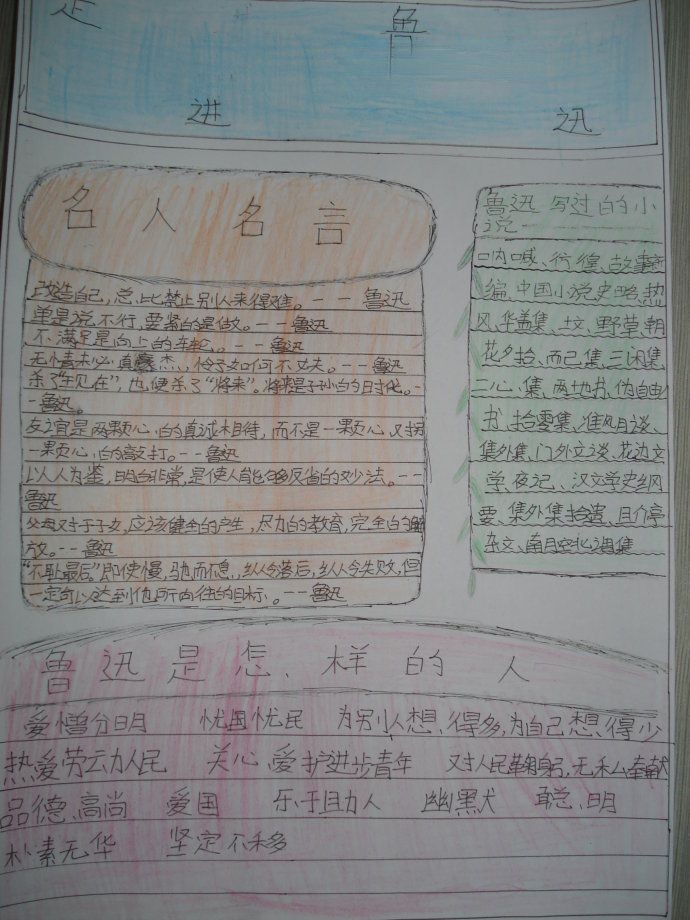 走 鲁
进 迅
名人名言
改造自己,总比禁止别人来得难。--鲁迅
单是说不行,要紧的是做。--鲁迅
不满足是向上的车轮。--鲁迅
无情未必真豪杰,怜子如何不丈夫。--鲁迅
杀了"现在",也便杀了"将来"。将来是子孙的时代。-
-鲁迅。
友谊是两颗心的真诚相待,而不是一颗心对另
一颗心的敲打。--鲁迅
以人为鉴,明白非常,是使人能够反省的妙法。--
鲁迅
父母对于子女,应该健全的产生,尽力的教育,完全的解
放。--鲁迅
"不耻最后"即使慢,驰而不息,纵令落后,纵令失败,但
一定可以达到他所向往的目标。--鲁迅
鲁迅写过的小
说
呐喊、彷徨、故事新
编、中国小说史略、热
风、华盖集、坟、野草、朝
花夕拾、而已集、三闲集
二心集、两地书、伪自由
书、拾零集、准风月谈、
集外集、门外文谈、花边文
学、夜记、汉文学史纲
要、集外集拾遗、且介亭
杂文、南腔北调集
鲁迅是怎样的人
爱憎分明 忧国忧民 为别人想得多,为自己想得少
热爱劳动人民 关心爱护进步青年 对人民鞠躬,无私奉献
品德高尚 爱国 乐于助人 幽默 聪明
朴素无华 坚定不移